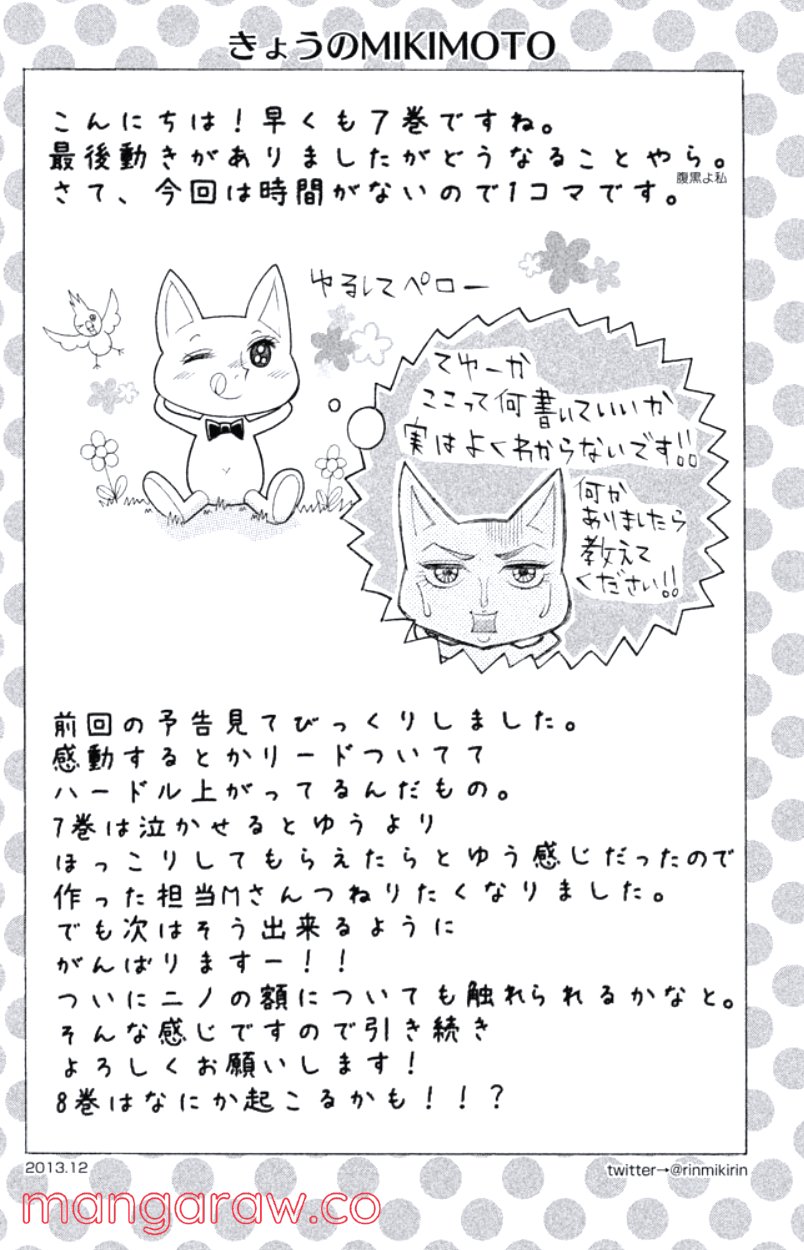 きょうのMIKIMOTO
こんにちは！早くも7巻ですね。
最後動きがありましたがどうなることやら。
腹黒よ私
さて、今回は時間がないので1コマです。
ゆるしてペロー
てゆーか
ここって何書いていいか
実はよくわからないです!!
何か
ありましたら
教えて
ください!!
前回の予告見てびっくりしました。
感動するとかリードついてて
ハードル上がってるんだもの。
7巻は泣かせるとゆうより
ほっこりしてもらえたらとゆう感じだったので
作った担当Mさんつねりたくなりました。
でも次はそう出来るように
がんばりますー！！
ついにニノの額についても触れられるかなと。
そんな感じですので引き続き
よろしくお願いします！
8巻はなにか起こるかも！！？
2013.12
twitter→@rinmikirin
mangaraw.co